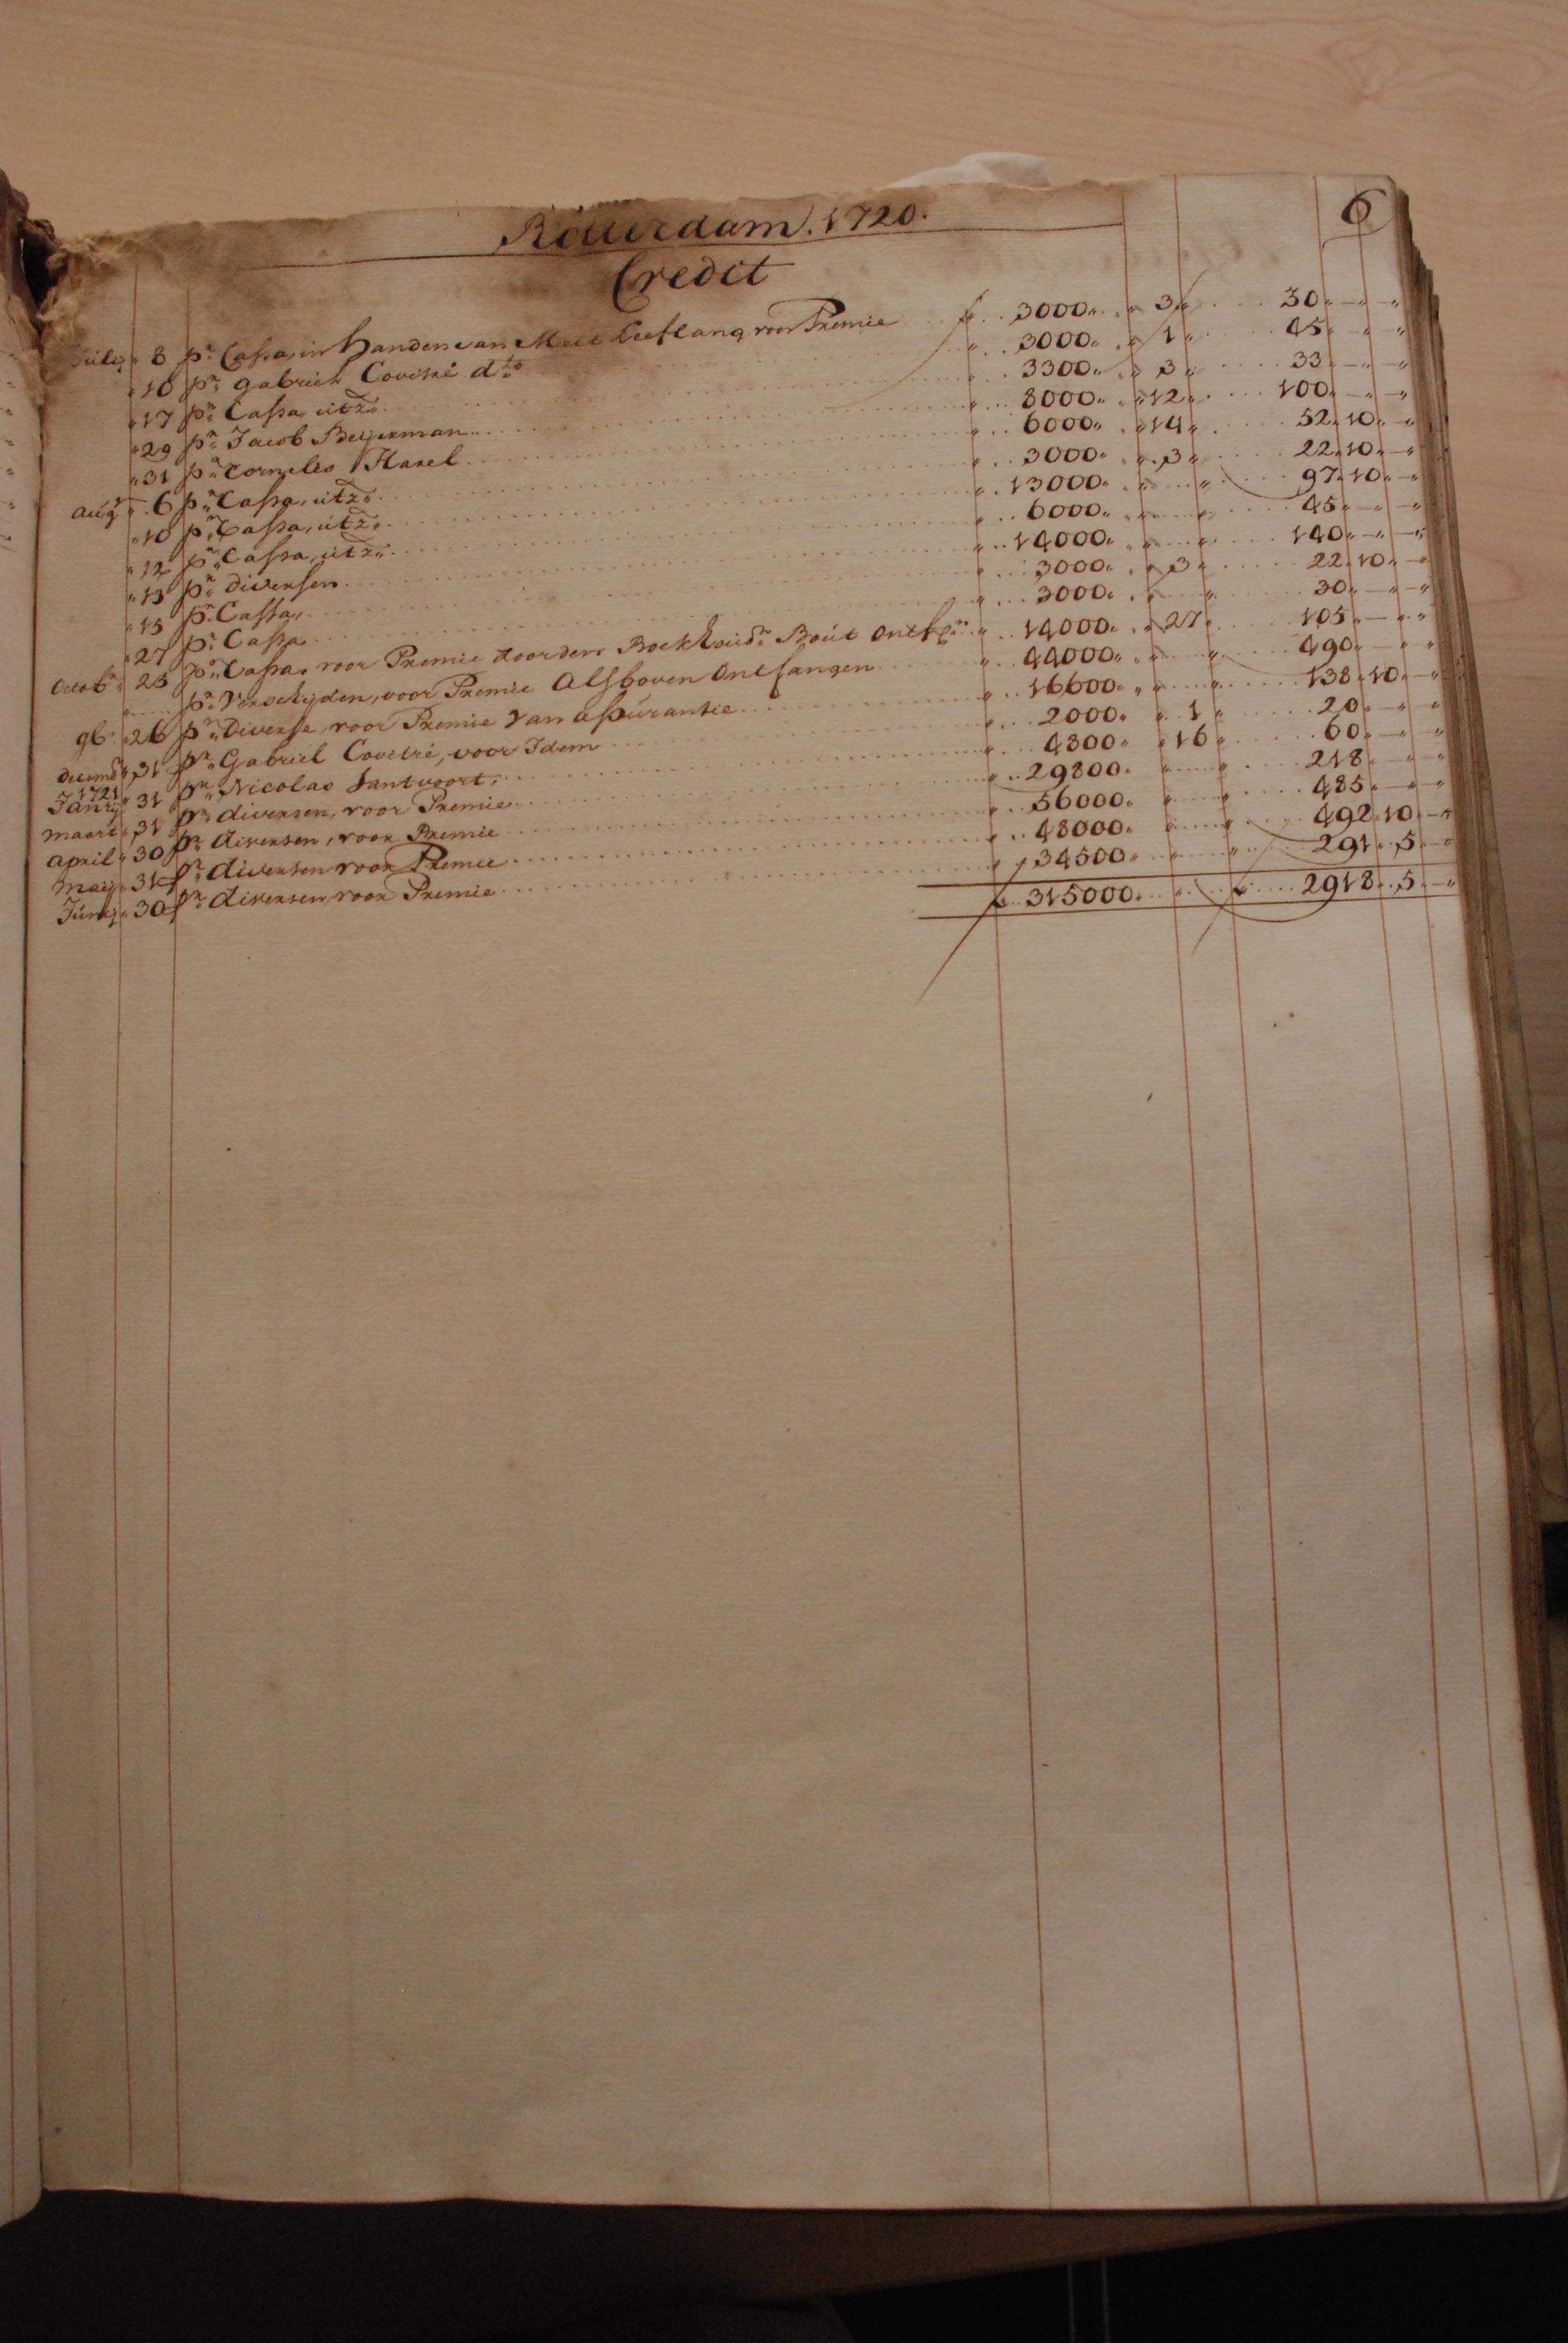 6
Rotterdam. 1720.
Credit
Julij 8 pr Cassa, in handen van Mees Leeflang voor Premie f 3000 3 30
10 pr gabriel Covitré dto 3000 1 45
17 pr Cassa utz 3300 3 33
29 pr Jacob Beijerman 8000 12 100
31 pr Cornelis Hasel 6000 14 52 10
augt 6 pr Cassa, utz 3000 3 22 10
10 pr Cassa, utz 13000 97 10
12 pr Cassa, utz 6000 45
13 pr diversen 14000 140
15 pr Cassa 3000 3 22 10
27 pr Cassa 3000 30
Octobr 25 pr Cassa, voor Premie door den Boekhoudr Bout ontfn 14000 27 105
pr Verscheyden, voor Premie Alsboven Ontfangen 44000 490
9br 26 pr Diverse, voor Premie van assurantie 16600 138 10
decembr 31 pr Gabriel Covitré, voor Idem 2000 1 20
1721
Janrij 31 pr Nicolas Santvoort 4800 16 60
maart 31 pr diversen, voor Premie 29800 218
april 30 pr diversen, voor Premie 56000 485
maij 31 pr diversen voor Premie 48000 492 10
Junij 30 pr diversen, voor Premie 34500 291 5
f 315000 f 2918 5